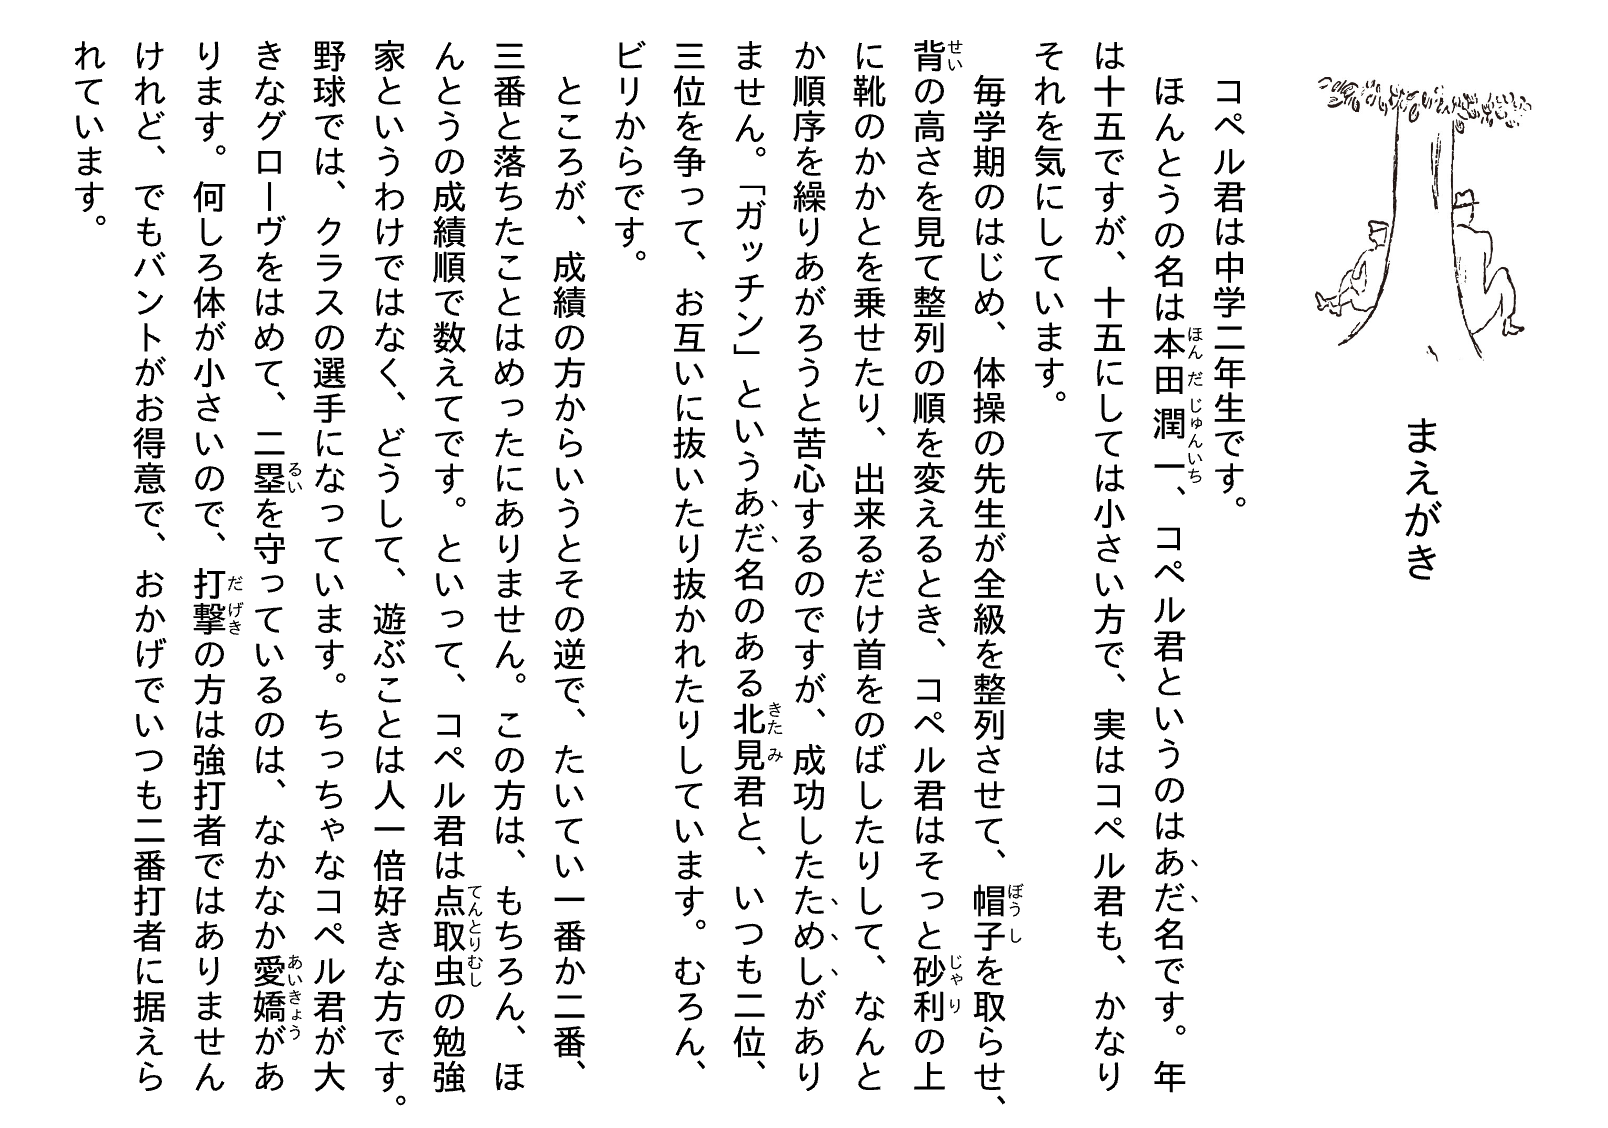 まえがき
コペル君は中学二年生です。
ほんとうの名は本田潤一、コペル君というのはあだ名です。年
は十五ですが、十五にしては小さい方で、実はコペル君も、かなり
それを気にしています。
毎学期のはじめ、体操の先生が全級を整列させて、帽子を取らせ、
背の高さを見て整列の順を変えるとき、コペル君はそっと砂利の上
に靴のかかとを乗せたり、出来るだけ首をのばしたりして、なんと
か順序を繰りあがろうと苦心するのですが、成功したためしがあり
ません。「ガッチン」というあだ名のある北見君と、いつも二位、
三位を争って、お互いに抜いたり抜かれたりしています。むろん、
ビリからです。
ところが、成績の方からいうとその逆で、たいてい一番か二番、
三番と落ちたことはめったにありません。この方は、もちろん、ほ
んとうの成績順で数えてです。といって、コペル君は点取虫の勉強
家というわけではなく、どうして、遊ぶことは人一倍好きな方です。
野球では、クラスの選手になっています。ちっちゃなコペル君が大
きなグローヴをはめて、二塁を守っているのは、なかなか愛嬌があ
ります。何しろ体が小さいので、打撃の方は強打者ではありません
けれど、でもバントがお得意で、おかげでいつも二番打者に据えら
れています。